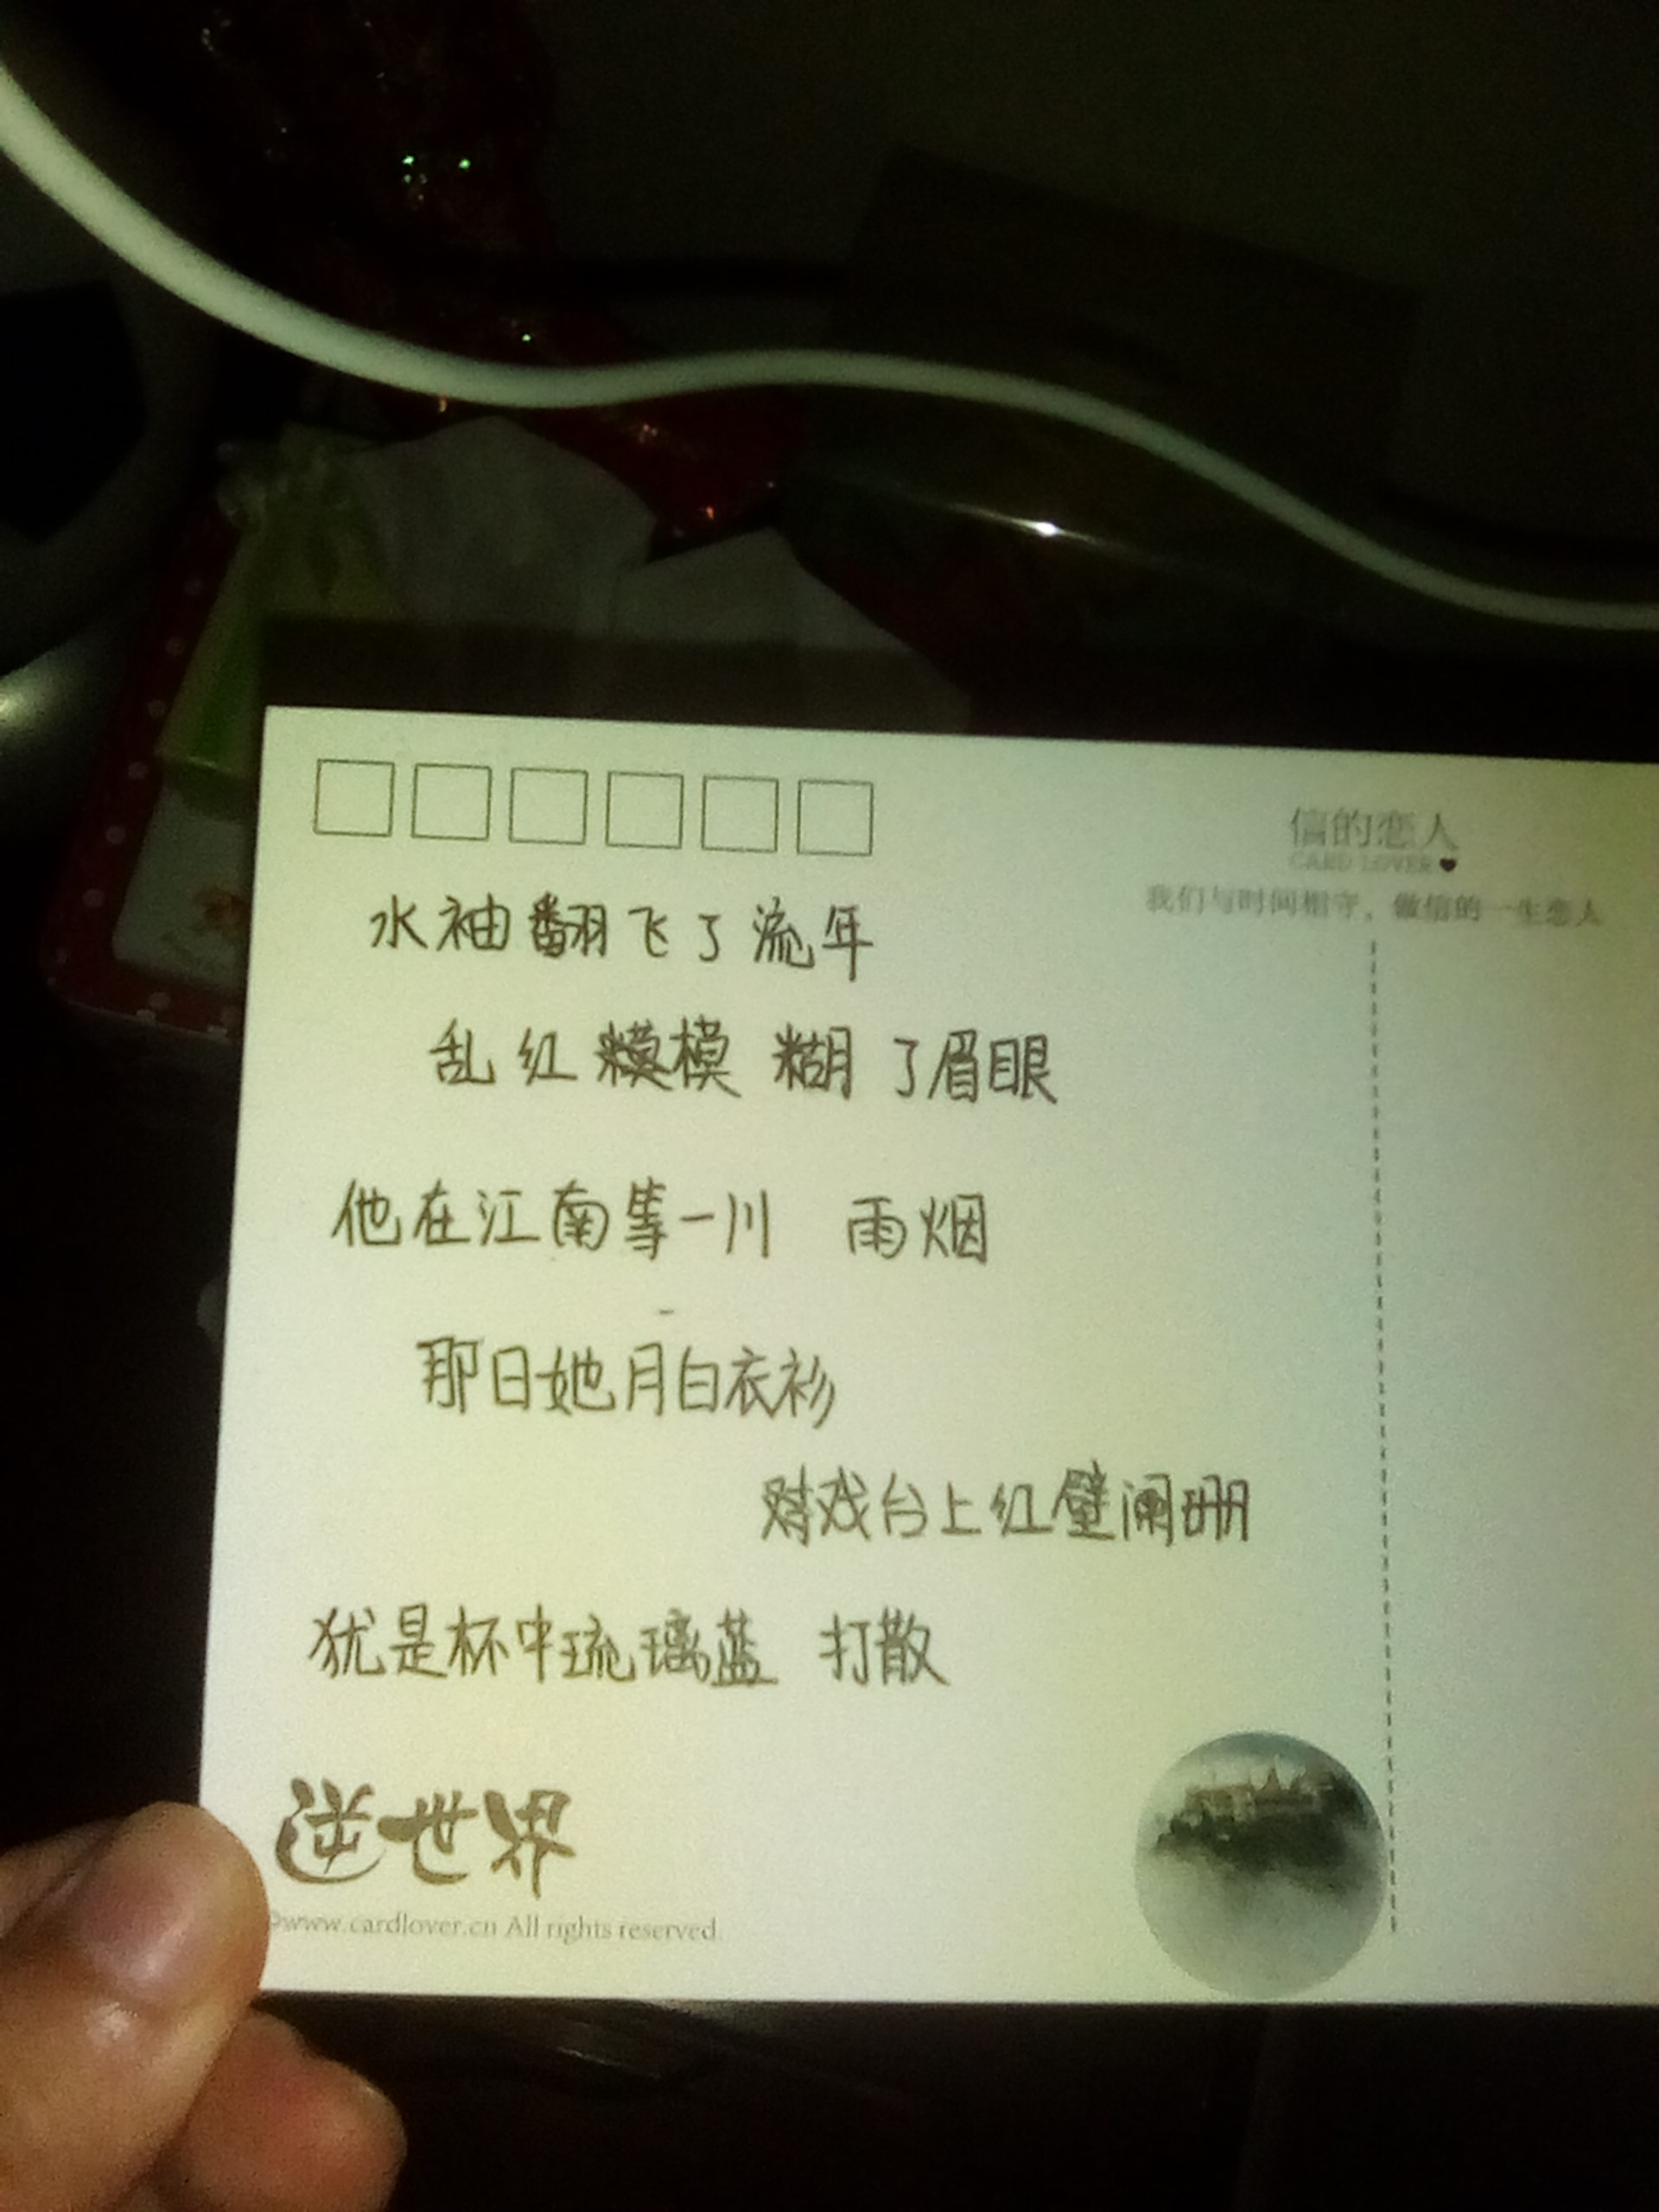 信的恋人
CARD LOVER
我们与时间相守，做信的一生恋人
水袖翻飞了流年
乱红模糊了眉眼
他在江南等一川 雨烟
那日她月白衣衫
对戏台上红壁阑珊
犹是杯中琉璃蓝 打散
逆世界
©www.cardlover.cn All rights reserved.